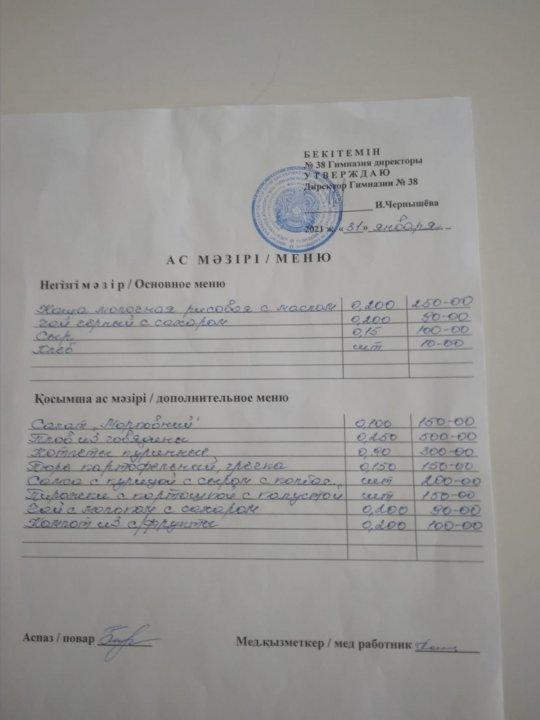 БЕКІТЕМІН
№ 38 Гимназия директоры
УТВЕРЖДАЮ
Директор Гимназии № 38
И.Чернышёва
2021 ж. «31» января
АС МӘЗІРІ / МЕНЮ
Негізгі мәзір / Основное меню
Каша молочная рисовая с маслом 0,200 250-00
Чай чёрный с сахаром 0,200 50-00
Сыр 0,15 100-00
Хлеб шт 10-00
Қосымша ас мәзірі / дополнительное меню
Салат 0,100 150-00
Плов из говядины 0,250 500-00
Котлеты куринные 300-00
Пюре картофельный, гречка 0,150 150-00
с курицой с сыром с шт 200-00
Пирожки с картошкой с капустой шт 150-00
Чай с молоком с сахаром 0,200 90-00
Компот из с/фрукты 0,200 100-00
Аспаз / повар
Мед.қызметкер / мед работник